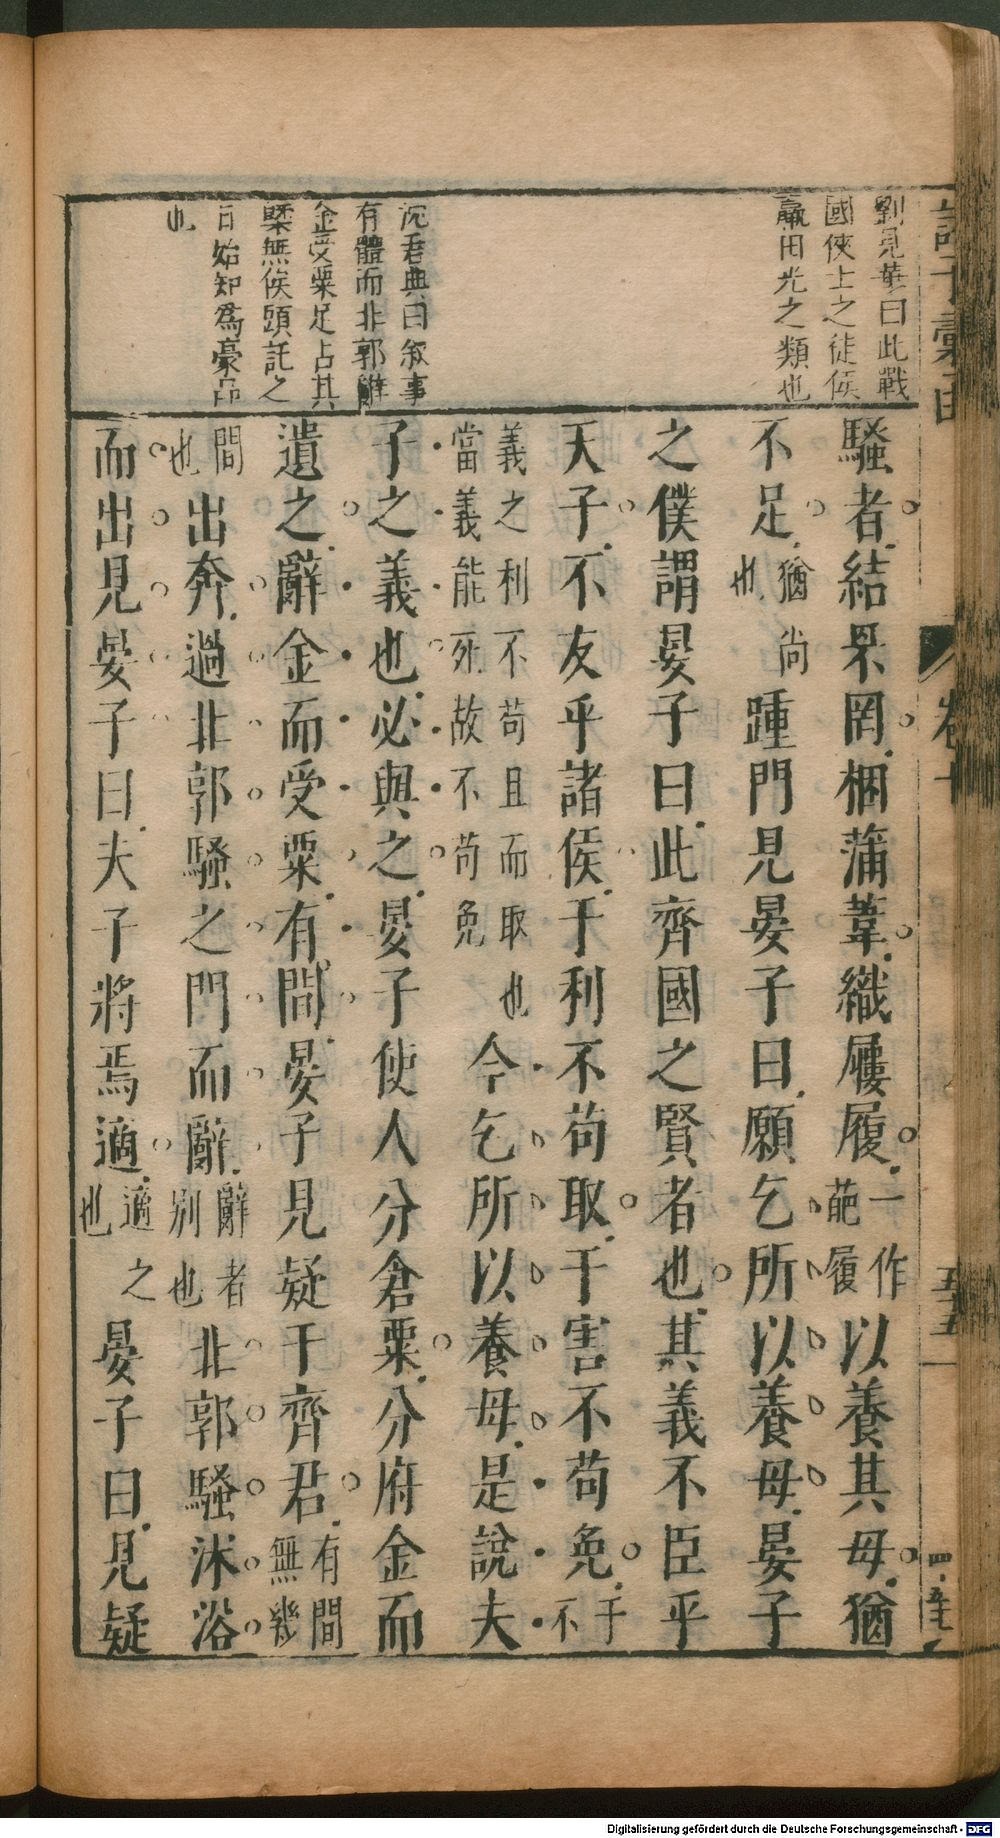 劉見華曰此戰
國俠士之徒侯
嬴田光之類也
沈君典曰叙事
有體而非郭辭
金受粟足占其
槩無俟頭託之
日始知爲豪品
也
騷者結罘罔梱蒲葦織屨履一作葩履以養其母猶
不足猶尚也踵門見晏子曰願乞所以養母晏子
之僕謂晏子曰此齊國之賢者也其義不臣乎
天子不友乎諸侯于利不苟取于害不苟免于不
義之利不苟且而取也當義能死故不苟免今乞所以養母是說夫
子之義也必與之晏子使人分倉粟分府金而
遺之辭金而受粟有間晏子見疑于齊君有間無幾
間也出奔過北郭騷之門而辭辭者別也北郭騷沐浴
而出見晏子曰夫子將焉適適之也晏子曰見疑
卷十
五十五
Digitalisierung gefördert durch die Deutsche Forschungsgemeinschaft - DFG